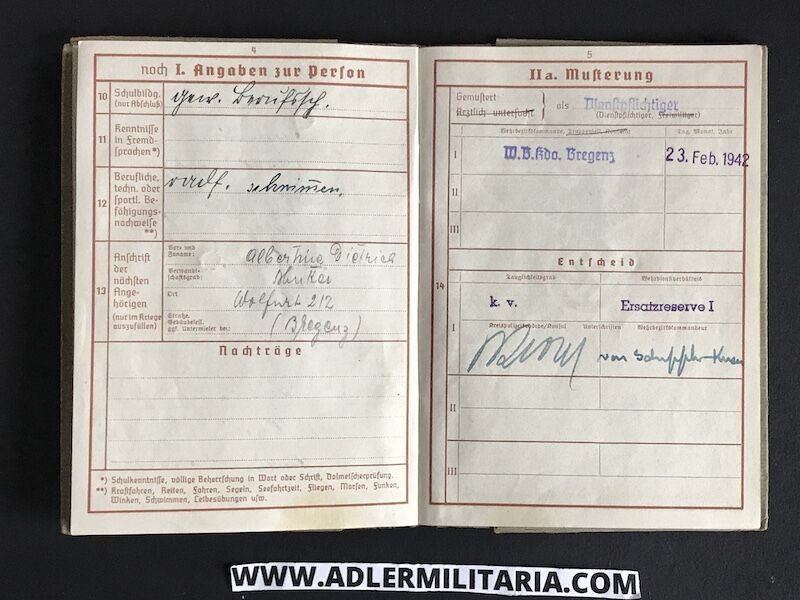 4
noch I. Angaben zur Person
10 Schulbildg. (nur Abschluß)
gew. Berufssch.
11 Kenntnisse in Fremdsprachen *)
12 Berufliche, techn. oder sportl. Befähigungsnachweise **)
radf. schwimmen.
13 Anschrift der nächsten Angehörigen (nur im Kriege auszufüllen)
Vor- und Zuname:
Albertina Dietrich
Verwandtschaftsgrad:
Mutter
Ort
Wolfurt 212
Straße, Gebäudeteil, ggf. Untermieter bei:
(Bregenz)
Nachträge
*) Schulkenntnisse, völlige Beherrschung in Wort oder Schrift, Dolmetscherprüfung.
**) Kraftfahren, Reiten, Fahren, Segeln, Seefahrtzeit, Fliegen, Morsen, Funken,
Winken, Schwimmen, Leibesübungen usw.
5
IIa. Musterung
Gemustert
ärztlich untersucht
als Dienstpflichtiger
(Dienstpflichtiger, Freiwilliger)
Tag, Monat, Jahr
I W.B.Kdo. Bregenz 23. Feb. 1942
II
III
Entscheid
14
Tauglichkeitsgrad Wehrdienstverhältnis
k. v. Ersatzreserve I
I Kreispolizeibehörde/Konsul Unterschriften Wehrbezirkskommandeur
von
II
III
WWW.ADLERMILITARIA.COM